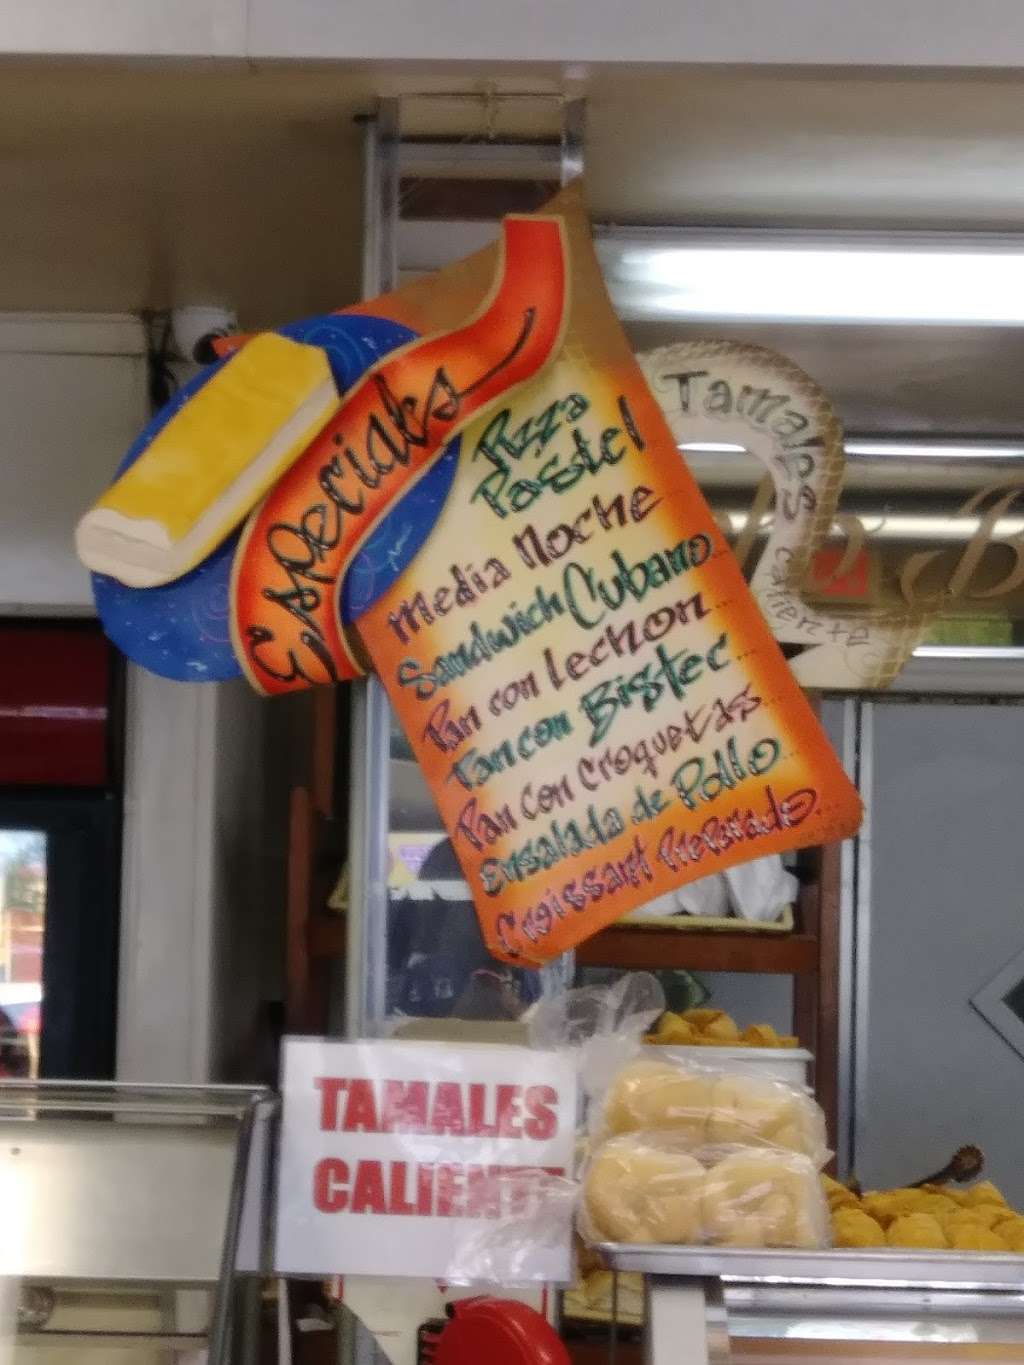 Especiales
Pizza
Pastel
Media Noche
Sandwich Cubano...
Pan con Lechon...
Pan con Bistec...
Pan Con Croquetas...
Ensalada de Pollo...
Croissant Preparado...
Tamales
TAMALES
CALIENTE